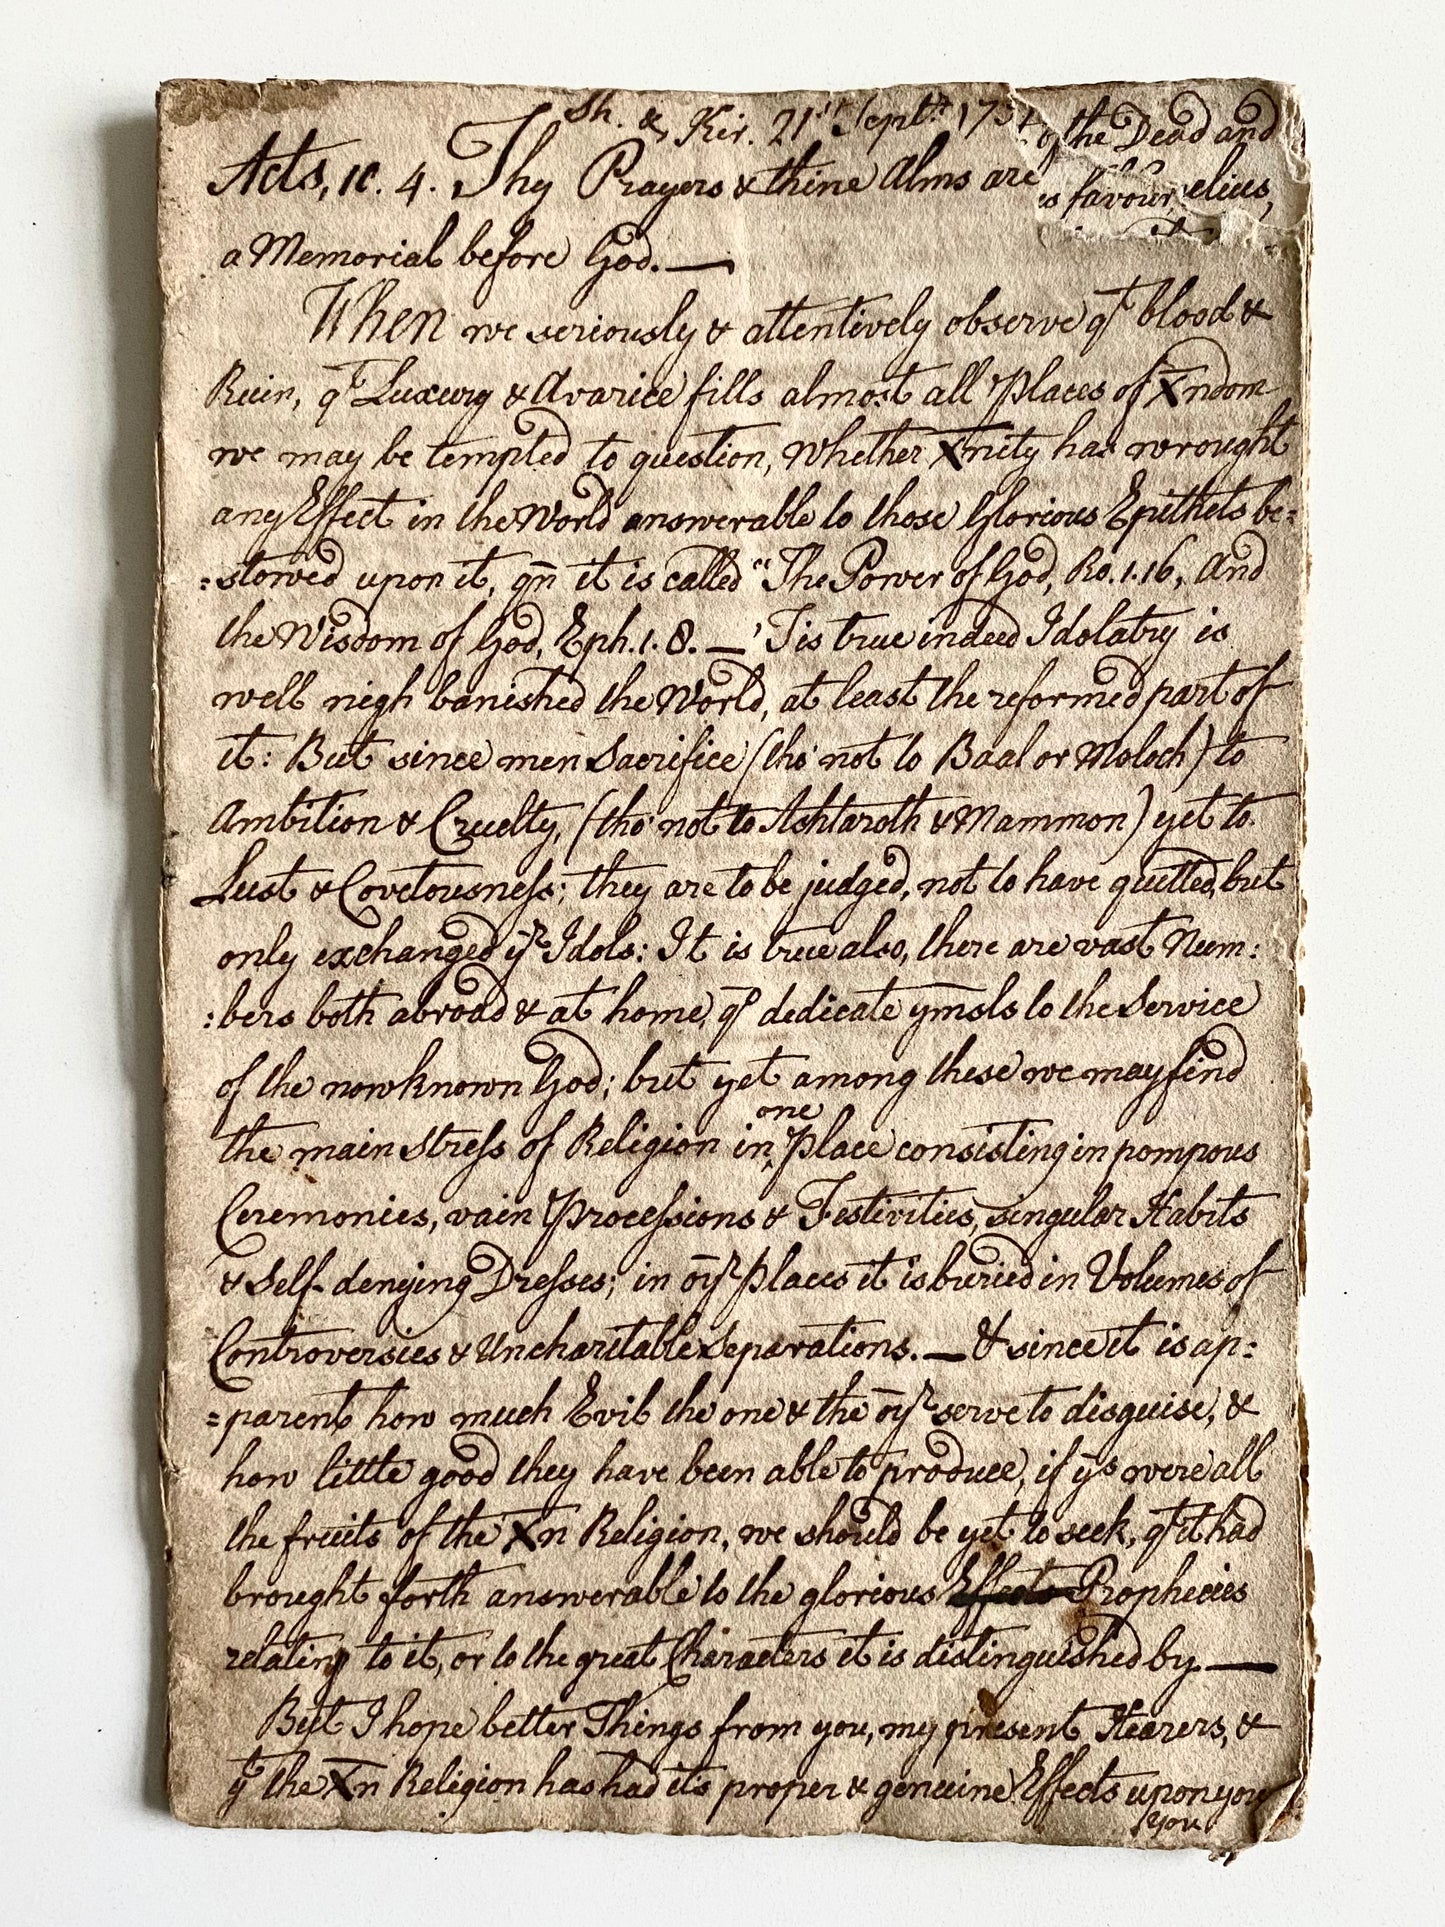 Sh. & Kir. 21st Septr. 173
of the Dead and
Acts, 1c. 4. Thy Prayers & thine Alms are
is favour, elius,
it
a Memorial before God. —
When we seriously & attentively observe qt blood &
Ruin, qt Luxury & Avarice fills almost all Places of Xndom
we may be tempted to question, Whether Xnity has wrought
any Effect in the World answerable to those Glorious Epithets be=
=stowed upon it, qn it is called "The Power of God, Ro. 1. 16, And
the Wisdom of God, Eph. 1. 8. — 'Tis true indeed Idolatry is
well nigh banished the World, at least the reformed part of
it: But since men Sacrifice (tho' not to Baal or Moloch) to
Ambition & Cruelty, (tho' not to Ashtaroth & Mammon) yet to
Lust & Covetousness; they are to be judged, not to have quitted, but
only exchanged yr Idols: It is true also, there are vast Num:
:bers both abroad & at home, qo dedicate ymsls to the Service
of the now known God; but yet among these we may find
one
the main Stress of Religion in ‸ Place consisting in pompous
Ceremonies, vain Processions & Festivities, singular Habits
& Self-denying Dresses; in oyr places it is buried in Volumes of
Controversies & Uncharitable Separations. — & since it is ap=
=parent how much Evil the one & the oyr serve to disguise, &
how little good they have been able to produce, if ys were all
the fruits of the Xn Religion, we should be yet to seek, qt it had
brought forth answerable to the glorious Effects Prophecies
relating to it, or to the great Characters it is distinguished by. —
But I hope better Things from you, my present Hearers, &
yt the Xn Religion has had its proper & genuine Effects upon you
you